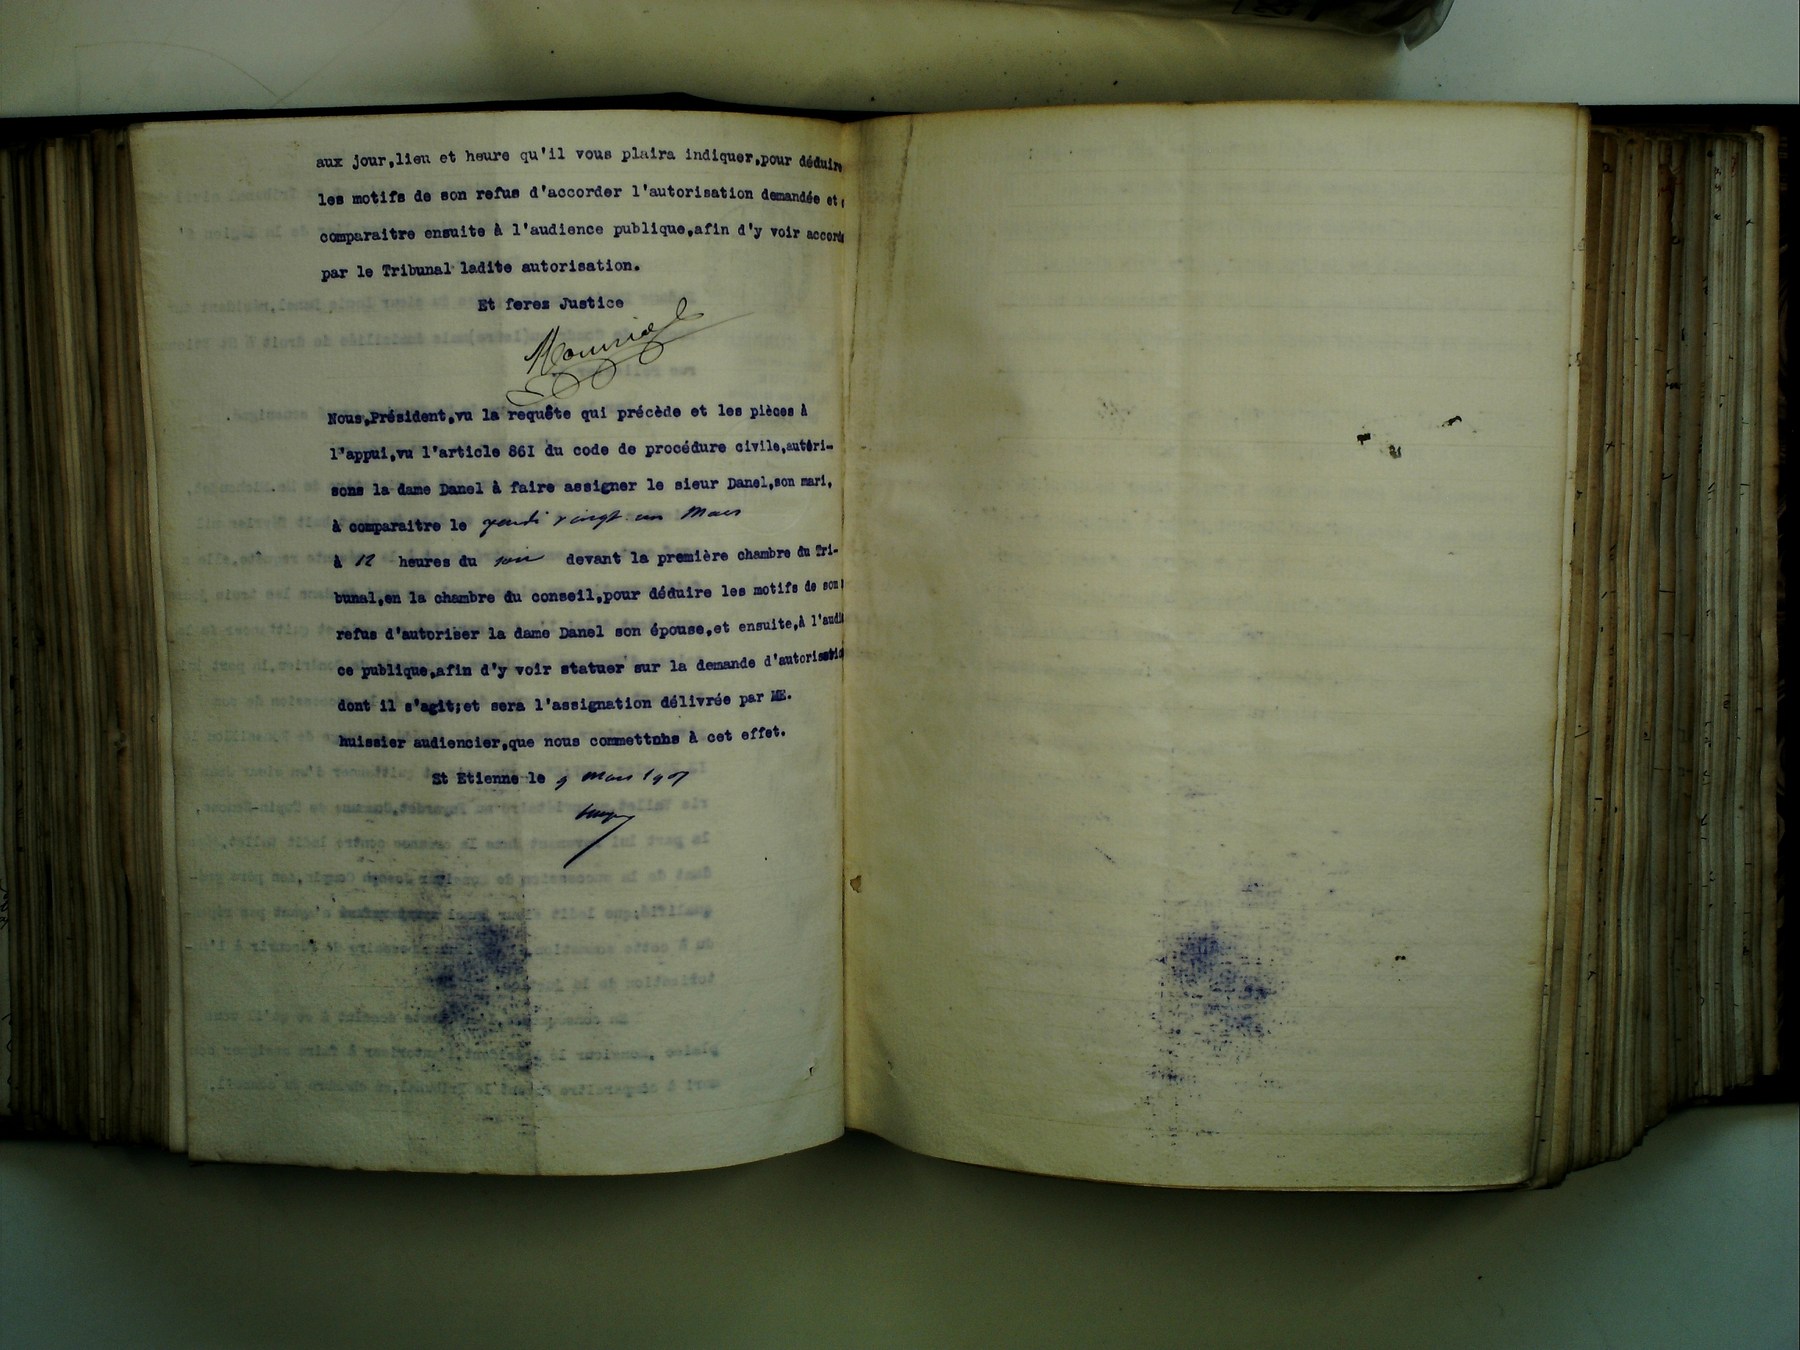 aux jour,lieu et heure qu'il vous plaira indiquer,pour déduire
les motifs de son refus d'accorder l'autorisation demandée et
comparaitre ensuite à l'audience publique,afin d'y voir accord
par le Tribunal ladite autorisation.
Et ferez Justice
Nous,Président,vu la requête qui précède et les pièces à
l'appui,vu l'article 86I du code de procédure civile,autori-
sons la dame Danel à faire assigner le sieur Danel,son mari,
à comparaitre le jeudi vingt un Mars
à 12 heures du soir devant la première chambre du Tri-
bunal,en la chambre du conseil,pour déduire les motifs de son
refus d'autoriser la dame Danel son épouse,et ensuite,à l'audi
ce publique,afin d'y voir statuer sur la demande d'autorisatio
dont il s'agit;et sera l'assignation délivrée par ME.
huissier audiencier,que nous commettnhs à cet effet.
St Etienne le 9 Mars 1907